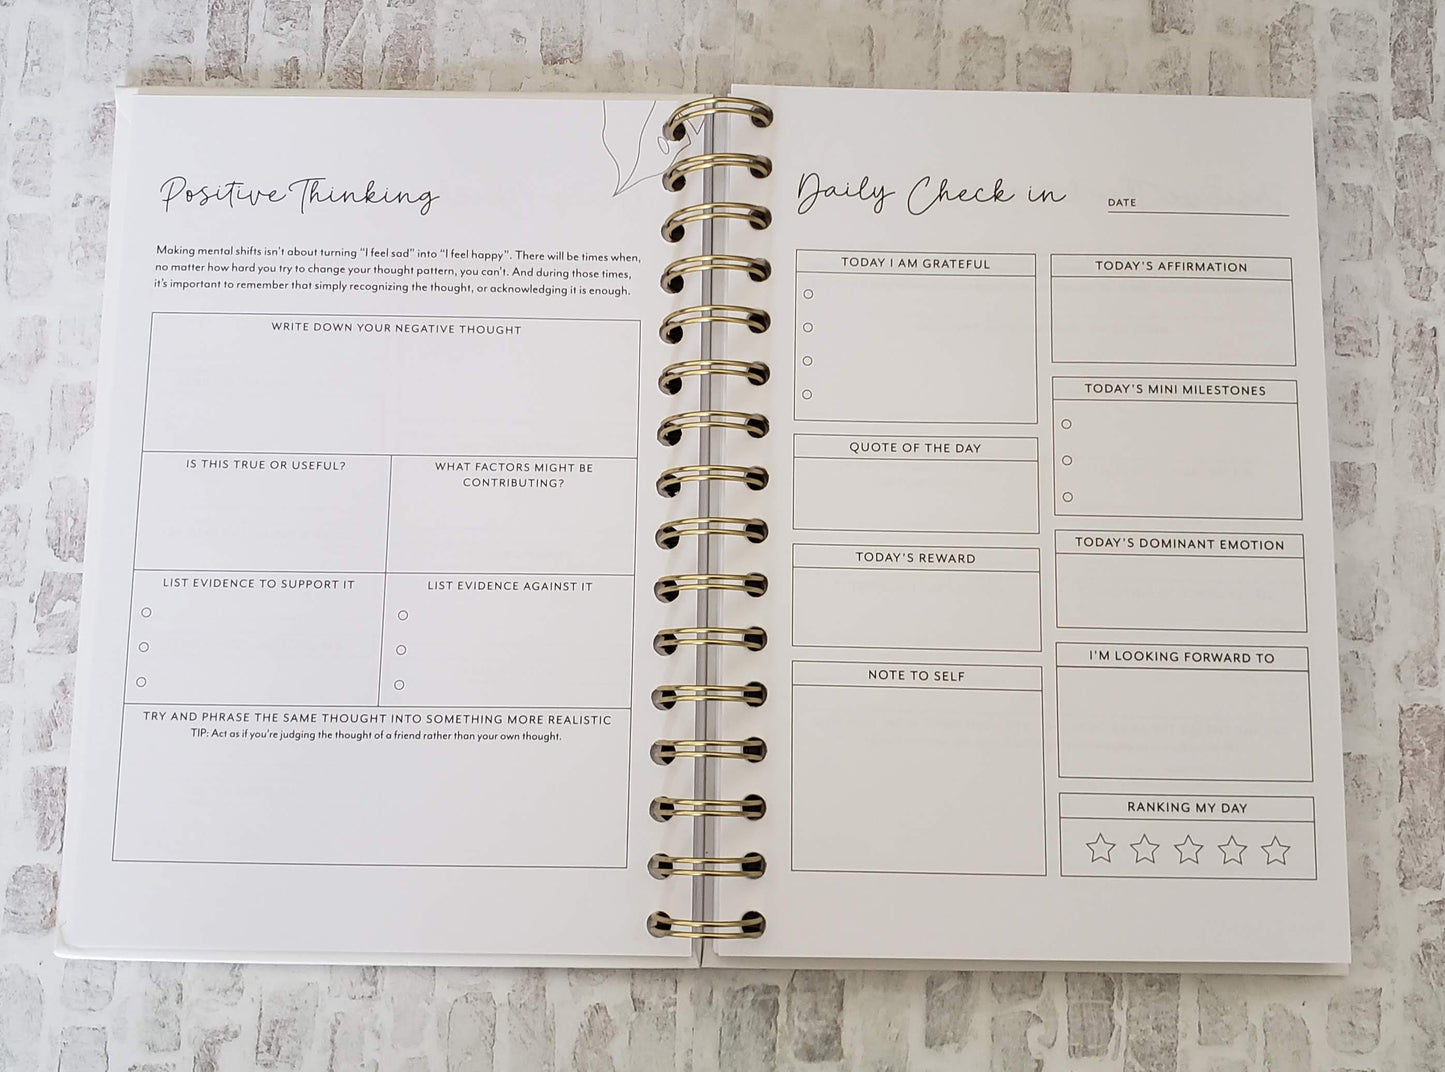 Positive Thinking
Making mental shifts isn't about turning "I feel sad" into "I feel happy". There will be times when,
no matter how hard you try to change your thought pattern, you can't. And during those times,
it's important to remember that simply recognizing the thought, or acknowledging it is enough.
WRITE DOWN YOUR NEGATIVE THOUGHT
IS THIS TRUE OR USEFUL?
WHAT FACTORS MIGHT BE
CONTRIBUTING?
LIST EVIDENCE TO SUPPORT IT
LIST EVIDENCE AGAINST IT
TRY AND PHRASE THE SAME THOUGHT INTO SOMETHING MORE REALISTIC
TIP: Act as if you're judging the thought of a friend rather than your own thought.
Daily Check in
DATE
TODAY I AM GRATEFUL
QUOTE OF THE DAY
TODAY'S REWARD
NOTE TO SELF
TODAY'S AFFIRMATION
TODAY'S MINI MILESTONES
TODAY'S DOMINANT EMOTION
I'M LOOKING FORWARD TO
RANKING MY DAY